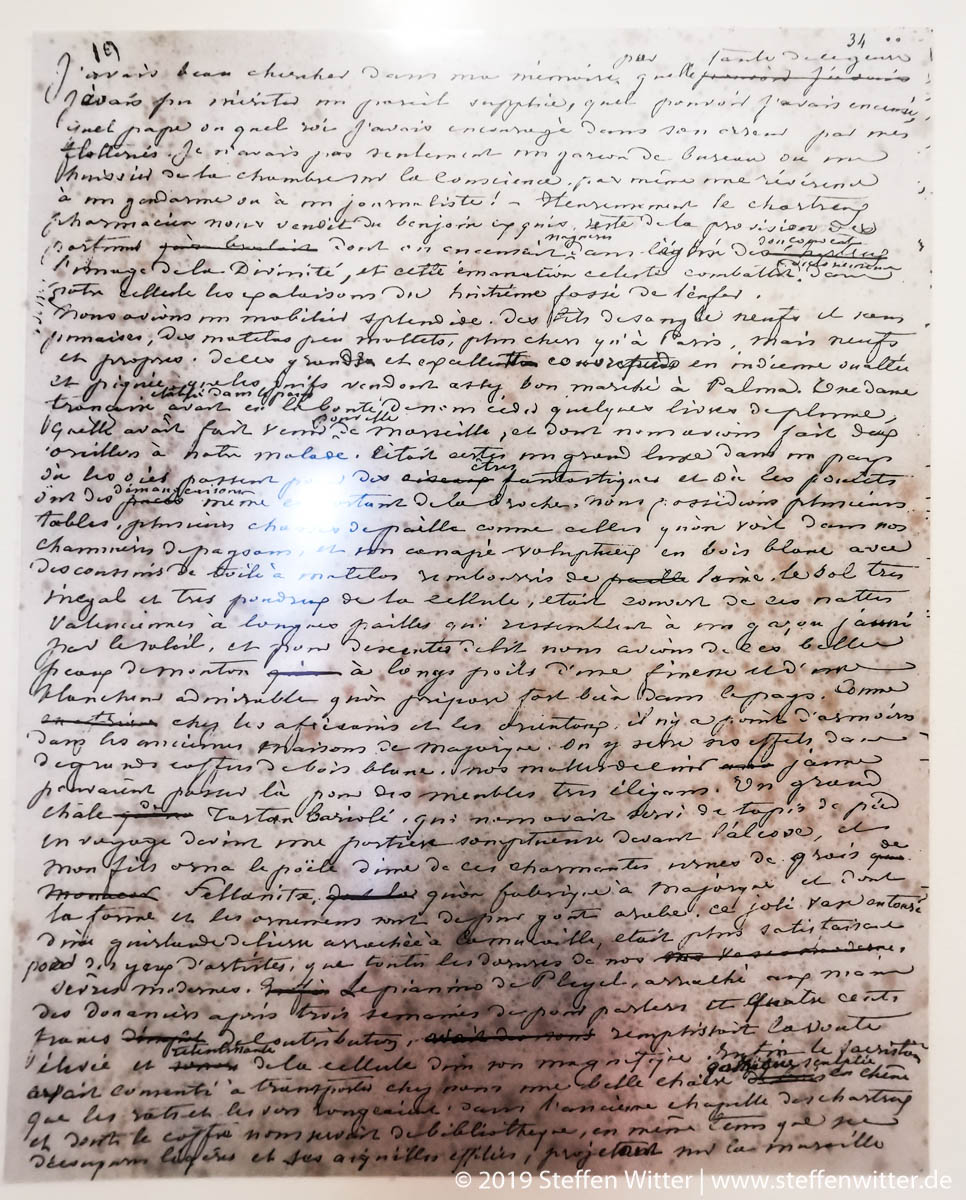 19
34
par tante de rigueur
J'avais beau chercher dans ma mémoire, quelle
j'avais pu mériter un pareil supplice, quel pouvoir j'avais encensé,
quel pape ou quel roi j'avais encouragé dans son erreur par mes
flatteries. Je n'avais pas seulement un garçon de bureau ou un
huissier de la chambre sur la conscience, pas même une révérence
à un gendarme ou à un journaliste! - Heureusement le chartreux
pharmacien nous vendit du benjoin exquis, reste de la provision des
parfums dont on encensait naguères dans l'église de son couvent
l'image de la Divinité, et cette émanation céleste combattit dans
notre cellule les exhalaisons du huitième fossé de l'enfer.
Nous avions un mobilier splendide. Des lits de sangle neufs et sans
punaises, des matelas peu mollets, plus chers qu'à Paris, mais neufs
et propres. de ces grands et excellents couvrepieds en indienne ouattée
et piquée que les juifs vendent assez bon marché à Palma. Une dame
française établie dans le pays avait eu la bonté de nous céder quelques livres de plume,
qu'elle avait fait venir pour elle de Marseille, et dont nous avions fait deux
oreillers à notre malade. C'était certes un grand luxe dans un pays
où les oies passent pour des êtres fantastiques et où les poulets
ont des démangeaisons même en sortant de la broche. Nous possédions plusieurs
tables, plusieurs chaises de paille comme celles qu'on voit dans nos
chaumières de paysans, et un canapé voluptueux en bois blanc avec
des coussins de toile à matelas rembourrés de laine. Le sol très
inégal et très poudreux de la cellule, était couvert de ces nattes
Valenciennes à longues pailles qui ressemblent à un gazon jauni
par le soleil, et pour descentes de lit nous avions de ces belles
peaux de mouton à longs poils d'une finesse et d'une
blancheur admirable qu'on prépare fort bien dans le pays. Comme
chez les africains et les orientaux, il n'y a point d'armoires
dans les anciennes maisons de Majorque. On y serre ses effets dans
de grands coffres de bois blanc. nos malles de cuir jaune
pouvaient passer là pour des meubles très élégans. Un grand
châle Tartan bariolé, qui nous avait servi de tapis de pied
en voyage devint une portière somptueuse devant l'alcove, et
mon fils orna le poêle d'une de ces charmantes urnes de grais de
Fellanitx, qu'on fabrique à Majorque et dont
la forme et les ornemens sont de pur goût arabe. Ce joli vase entouré
d'une guirlande de lierre arrachée à la muraille, était plus satisfaisant
pour des yeux d'artistes, que toutes les dorures de nos
Sèvres modernes. Le pianino de Pleyel, arraché aux mains
des douaniers après trois semaines de pourparlers et quatre cents
francs de contribution, remplissait la voûte
élevée et retentissante de la cellule d'un son magnifique. Enfin le sacristain
avait consenti à transporter chez nous une belle chaise gothique sculptée en chêne
que les rats et les vers rongeaient dans l'ancienne chapelle des chartreux
et dont le coffre nous servait de bibliothèque, en même tems que ses
découpures légères et ses aiguilles effilées, projetant sur la muraille
© 2019 Steffen Witter | www.steffenwitter.de